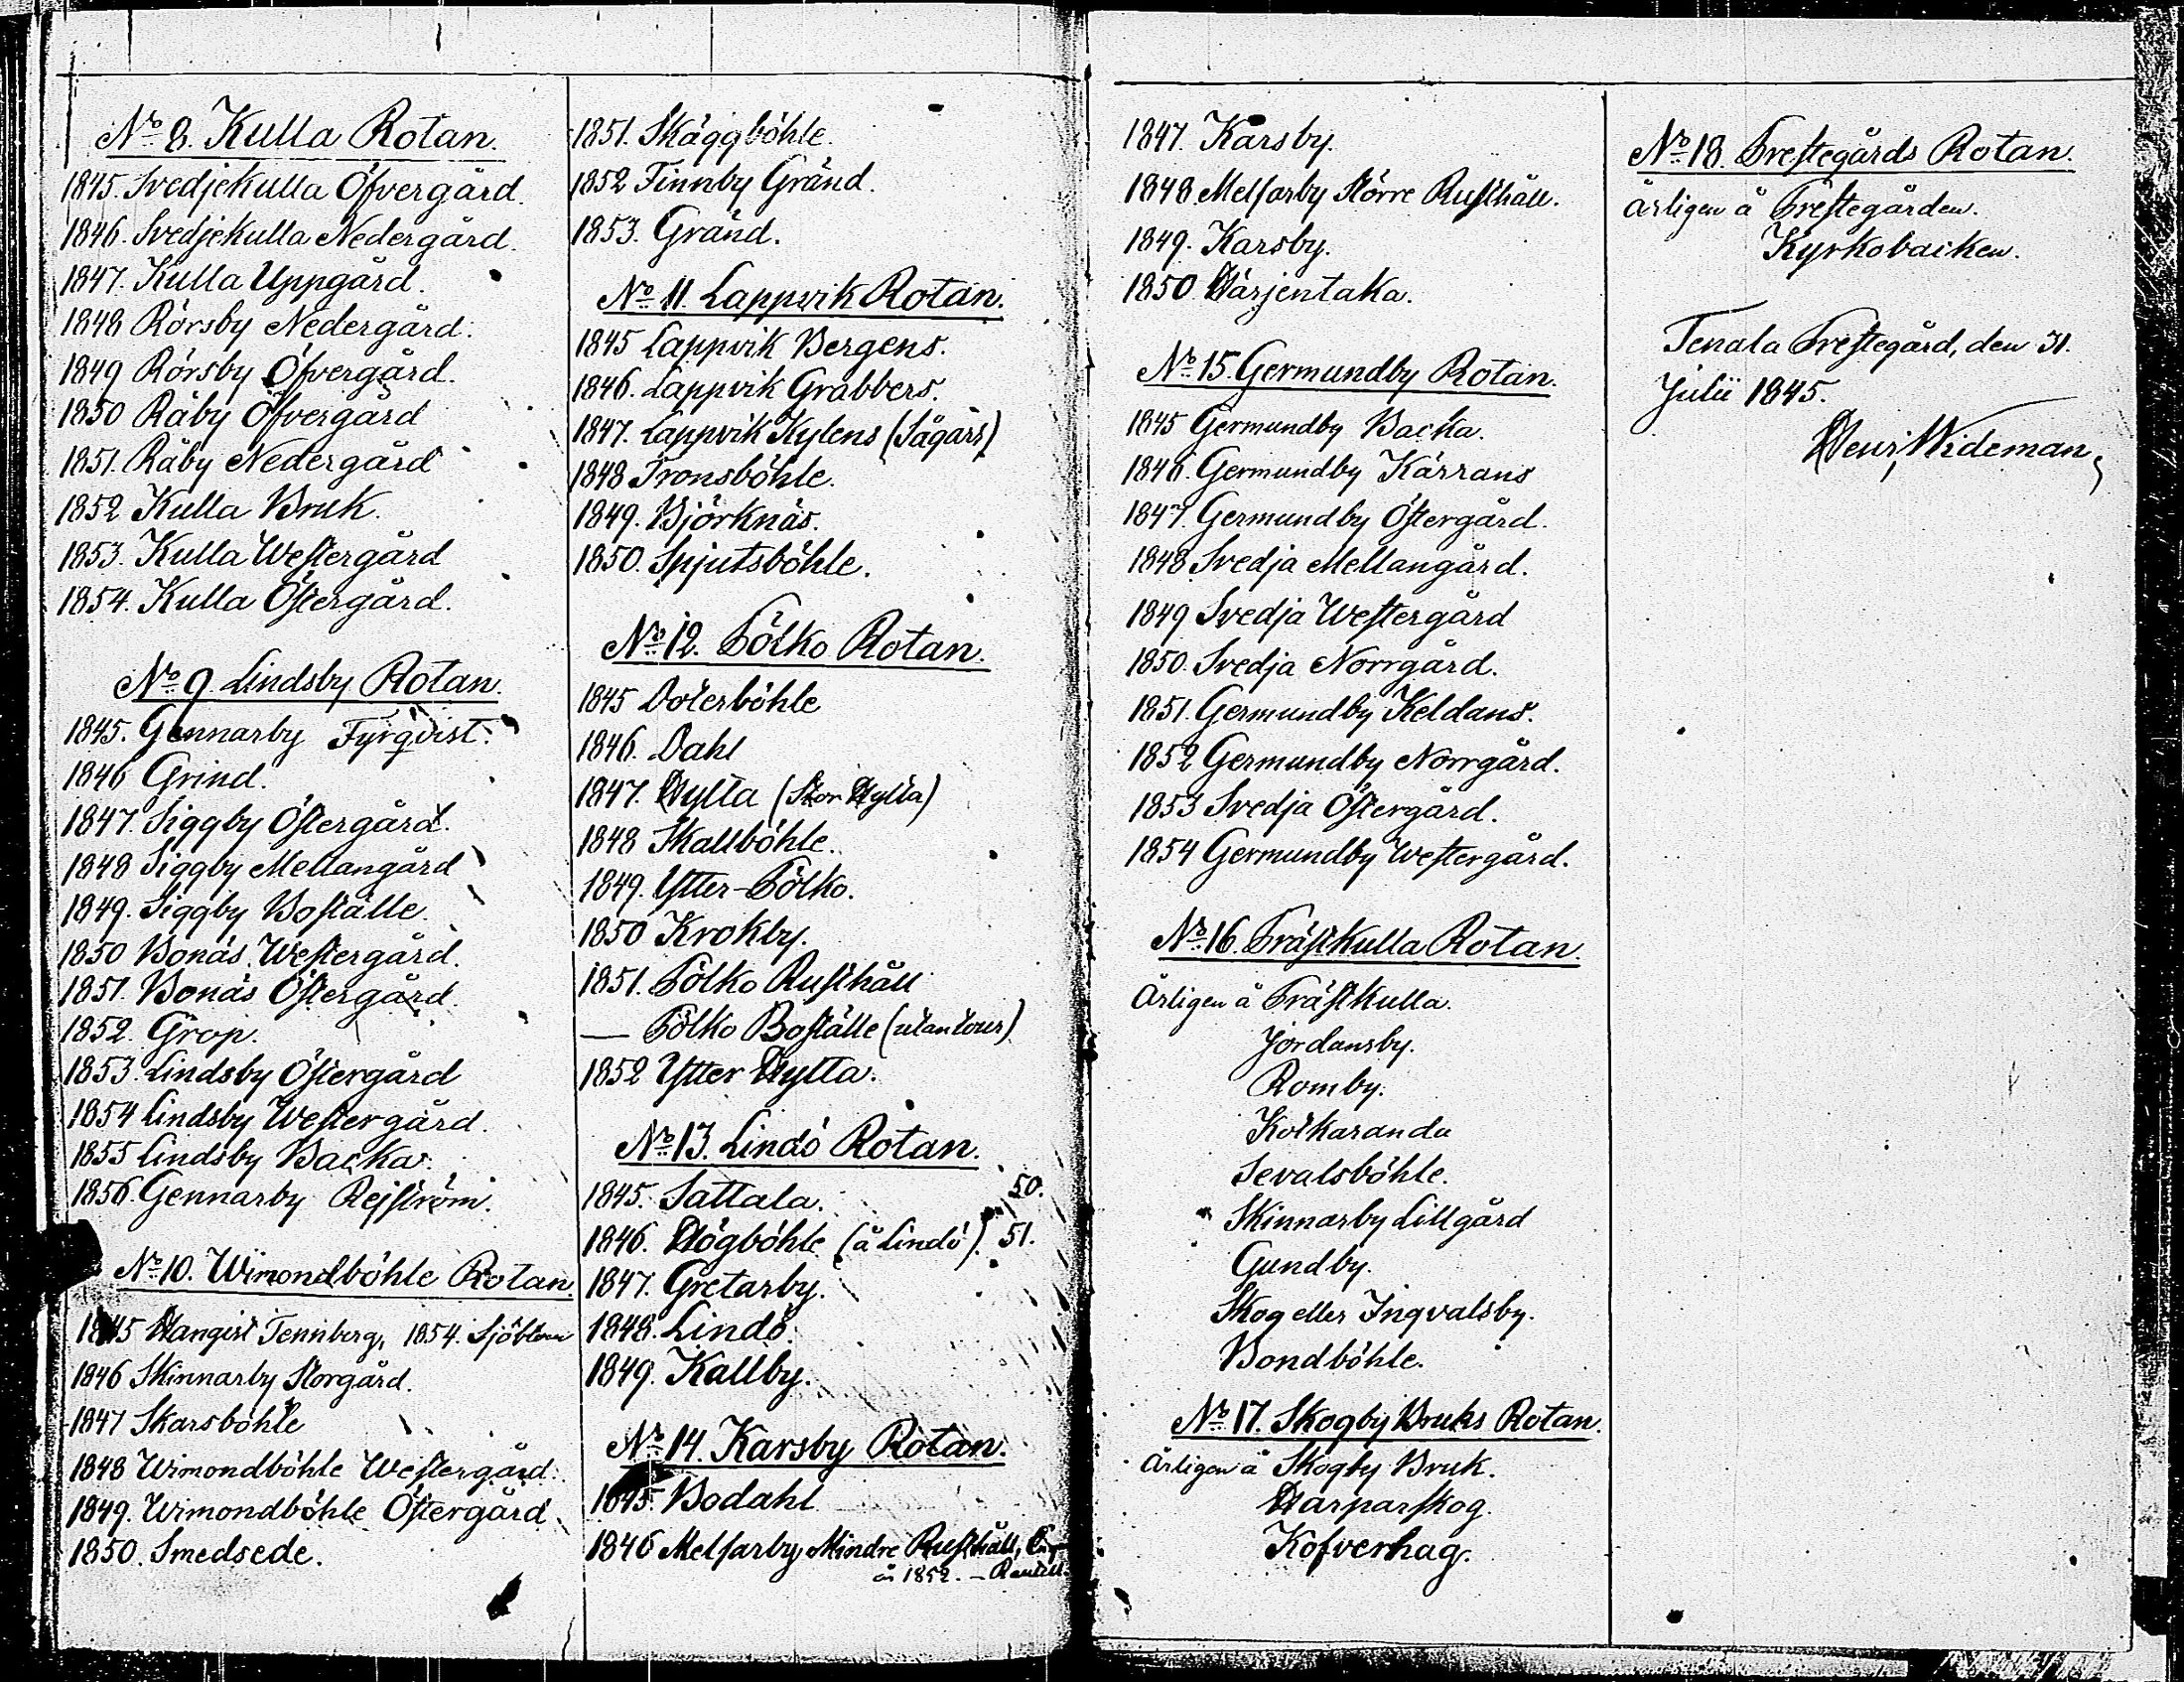 No 8. Kulla Rotan.
1845. Svedjekulla Öfvergård.
1846. Svedjekulla Nedergård.
1847. Kulla Uppgård.
1848 Rörsby Nedergård.
1849 Rörsby Öfvergård.
1850 Råby Öfvergård
1851. Råby Nedergård
1852 Kulla Bruk.
1853. Kulla Westergård
1854. Kulla Östergård.
No 9. Lindsby Rotan.
1845. Gennarby Fyrqvist.
1846 Grind.
1847. Siggby Östergård.
1848 Siggby Mellangård
1849. Siggby Boställe.
1850 Bonäs Westergård.
1851. Bonäs Östergård.
1852. Grop.
1853. Lindsby Östergård
1854 Lindsby Westergård.
1855 Lindsby Backa.
1856. Gennarby Rejström.
No 10. Wimondböhle Rotan.
1845 Hangist Tennberg, 1854. Sjöblom
1846 Skinnarby Storgård.
1847 Skarsböhle
1848 Wimondböhle Westergård.
1849. Wimondböhle Östergård
1850. Smedsede.
1851. Skäggböhle.
1852 Finnby Gränd.
1853. Gränd.
No 11. Lappvik Rotan.
1845 Lappvik Bergens.
1846. Lappvik Grabbers.
1847. Lappvik Kylens (Sågars)
1848 Tronsböhle.
1849. Björknäs.
1850. Spjutsböhle.
No 12. Pölko Rotan.
1845 Dotterböhle
1846. Dahl
1847. Hylta (Stor Hylta)
1848 Skallböhle.
1849. Ytter-Pölko.
1850 Krokby.
1851. Pölko Rusthåll
— Pölko Boställe (utan tour)
1852 Ytter Hylta.
No 13. Lindö Rotan.
1845. Sattala. 50.
1846. Högböhle (å Lindö). 51.
1847. Gretarby.
1848. Lindö.
1849. Kallby.
No 14. Karsby Rotan.
1845. Bodahl
1846 Melsarby Mindre Rusthåll,
år 1852. —
1847. Karsby.
1848. Melsarby Större Rusthåll.
1849. Karsby.
1850. Härjentaka.
No 15. Germundby Rotan.
1845 Germundby Backa.
1846. Germundby Kärrans
1847. Germundby Östergård.
1848 Svedja Mellangård.
1849 Svedja Westergård
1850. Svedja Norrgård.
1851. Germundby Keldans.
1852 Germundby Norrgård.
1853 Svedja Östergård.
1854 Germundby Westergård.
No 16. Prästkulla Rotan.
Årligen å Prästkulla.
Jordansby.
Romby.
Kotkaranda
Sevalsböhle.
Skinnarby Lillgård
Gundby.
Skog eller Ingvalsby.
Bondböhle.
No 17. Skogby Bruks Rotan.
Årligen å Skogby Bruk.
Harparskog.
Kofverhag.
No 18. Prestegårds Rotan.
Årligen å Prestegården.
Kyrkobacken.
Tenala Prestegård, den 31.
Julii 1845.
Henr. Wideman